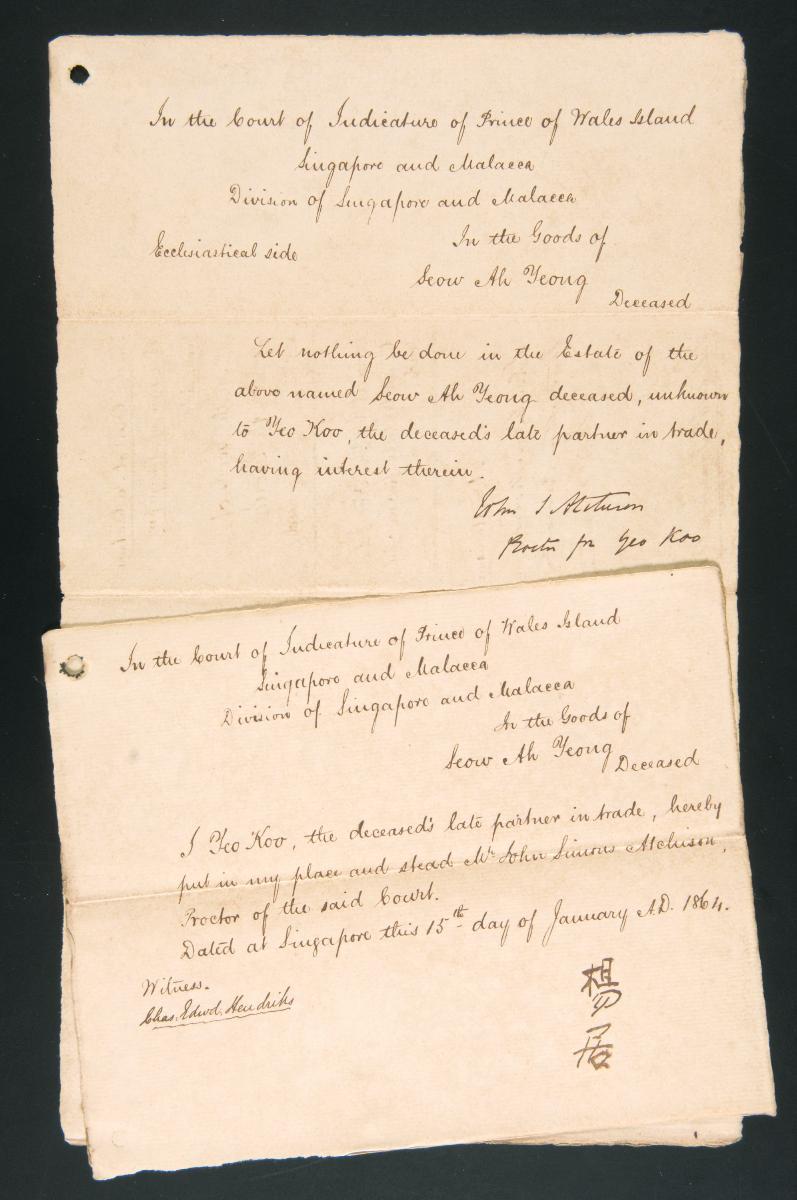 In the Court of Judicature of Prince of Wales Island
Singapore and Malacca
Division of Singapore and Malacca
Ecclesiastical side
In the Goods of
Seow Ah Yeong
Deceased
Let nothing be done in the Estate of the
above named Seow Ah Yeong deceased, unknown
to Yeo Koo, the deceased's late partner in trade,
having interest therein.
John S Atchison
Proctor for Yeo Koo
In the Court of Judicature of Prince of Wales Island
Singapore and Malacca
Division of Singapore and Malacca
In the Goods of
Seow Ah Yeong
Deceased
I Yeo Koo, the deceased's late partner in trade, hereby
put in my place and stead Mr. John Simons Atchison,
Proctor of the said Court.
Dated at Singapore this 15th day of January A.D. 1864.
Witness.
Chas. Edwd. Hendriks
楊
居